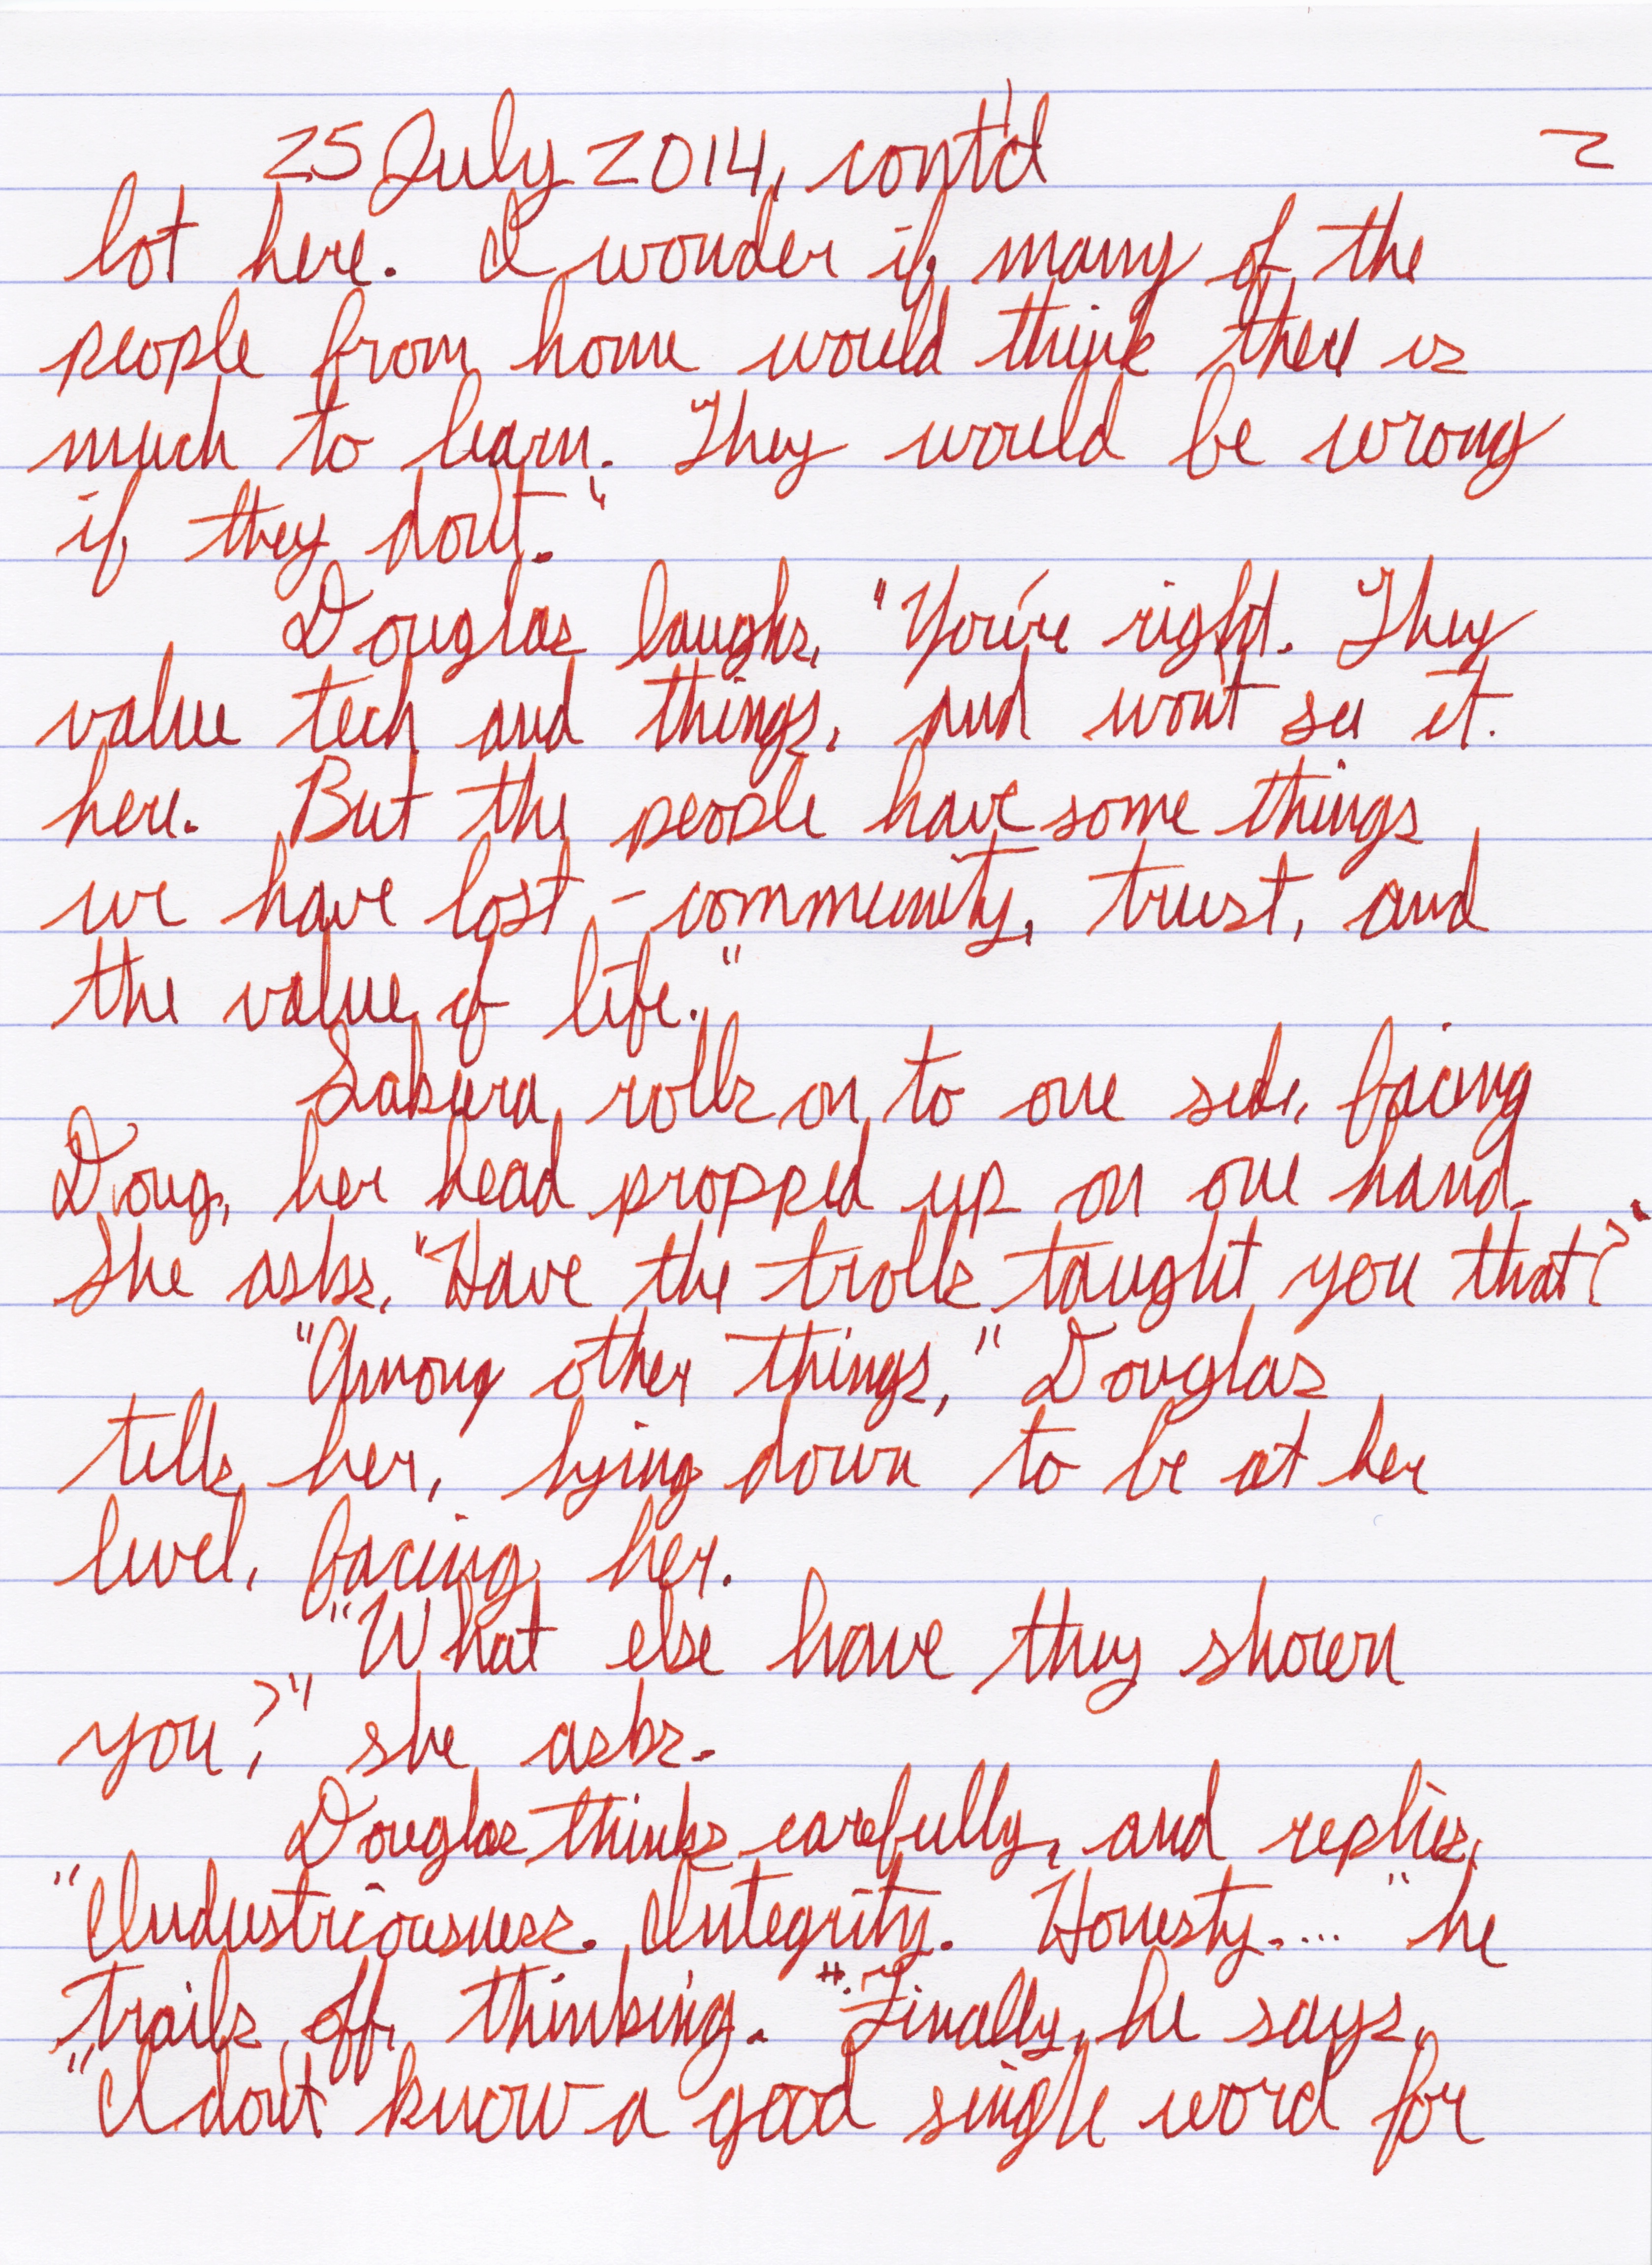 25 July 2014, cont'd 2
lot here. I wonder if many of the
people from home would think there is
much to learn. They would be wrong
if they don't."
Douglas laughs, "You're right. They
value tech and things, and won't see it.
here. But the people have some things
we have lost - community, trust, and
the value of life."
Sakura rolls on to one side, facing
Doug, her head propped up on one hand.
She asks, "Have the trolls taught you that?"
"Among other things," Douglas
tells her, lying down to be at her
level, facing her.
"What else have they shown
you?" she asks.
Douglas thinks carefully, and replies,
"Industriousness. Integrity. Honesty...." he
trails off, thinking. "Finally, he says,
"I don't know a good single word for